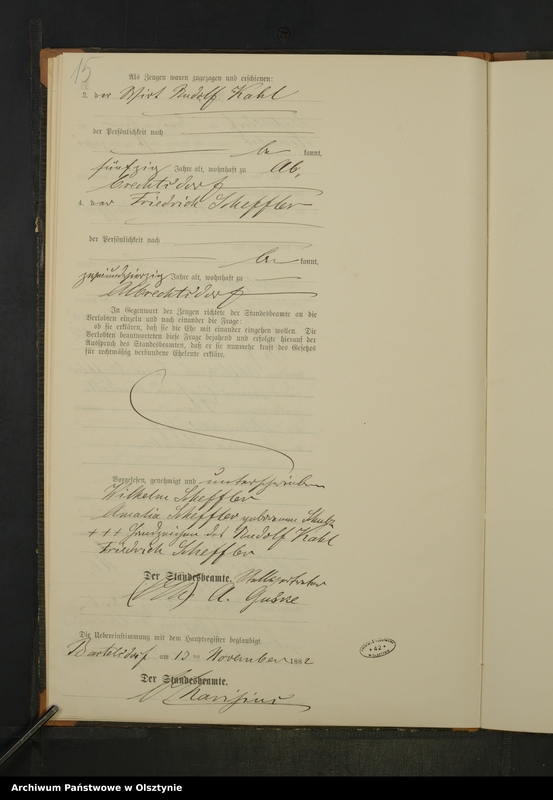 15
Als Zeugen waren zugezogen und erschienen:
3. der Wirt Rudolf Kahl
der Persönlichkeit nach
be kannt,
fünfzig Jahre alt, wohnhaft zu Al-
brechtsdorf
4. der Friedrich Scheffler
der Persönlichkeit nach
be kannt,
zweiundvierzig Jahre alt, wohnhaft zu
Albrechtsdorf
In Gegenwart der Zeugen richtete der Standesbeamte an die
Verlobten einzeln und nach einander die Frage:
ob sie erklären, daß sie die Ehe mit einander eingehen wollen. Die
Verlobten beantworteten diese Frage bejahend und erfolgte hierauf der
Ausspruch des Standesbeamten, daß er sie nunmehr kraft des Gesetzes
für rechtmäßig verbundene Eheleute erkläre.
Vorgelesen, genehmigt und unterschrieben
Wilhelm Scheffler
Amalia Scheffler geborene Schulz
+++ Handzeichen des Rudolf Kahl
Friedrich Scheffler
Der Standesbeamte. Stellvertreter
A.
Die Uebereinstimmung mit dem Hauptregister beglaubigt.
Bartelsdorf am 13 ten November 1882
Der Standesbeamte.
Archiwum Państwowe w Olsztynie